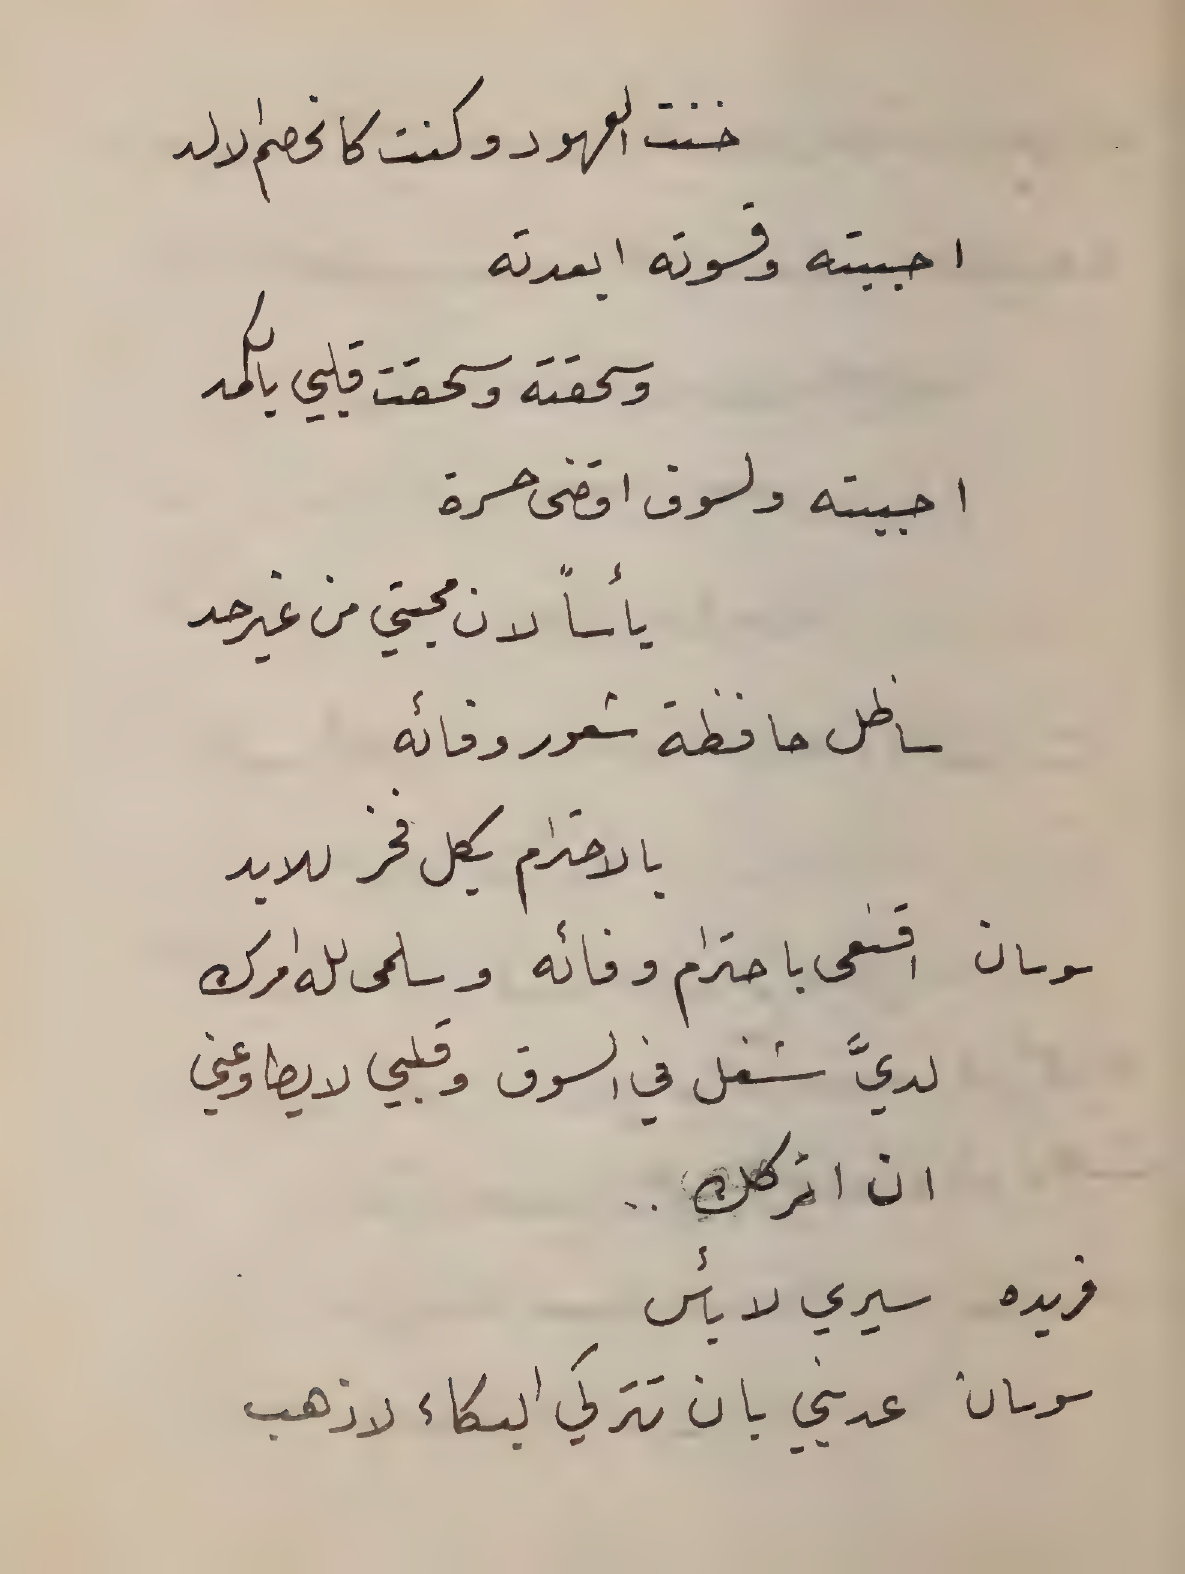 خنت العهود وكنت كالخصم الالد
احببته وقسوته ابعدته
وسحقته وسحقت قلبي بالكمد
احببته ولسوف اقضى حسرة
يأساً لان محبتي من غير حد
ساظل حافظة شعور وفائه
بالاحترام بكل فخر للابد
سوسان اقنعى باحترام وفائه وسلمى لله امرك
لديَّ شغل في السوق وقلبي لايطاوعني
ان اتركك ..
فريده سيري لا بأس
سوسان عديني بان تتركي البكاء لاذهب